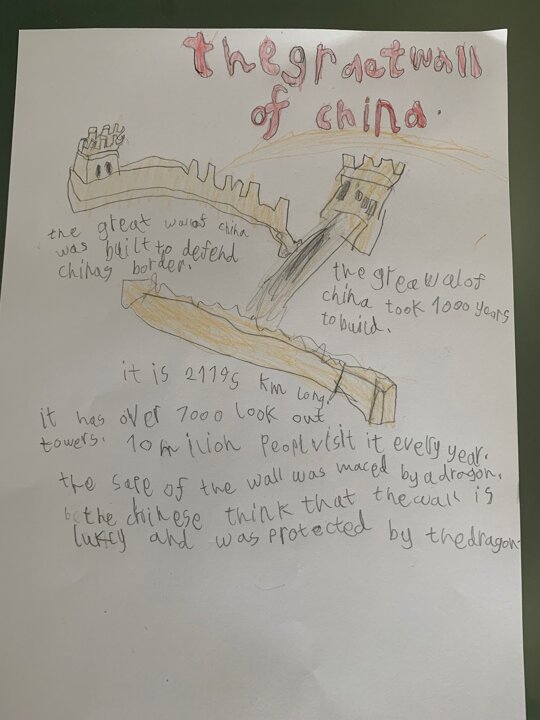 the graetwall
of china.
the great wallof china
was built to defend
chinas border.
the greawalof
china took 1000 years
to build.
it is 21195 km long.
it has over 7000 look out
towers. 10 milion peopl visit it every year.
the sape of the wall was maced by a dragon.
the chinese think that the wall is
lukcy and was protected by the dragon